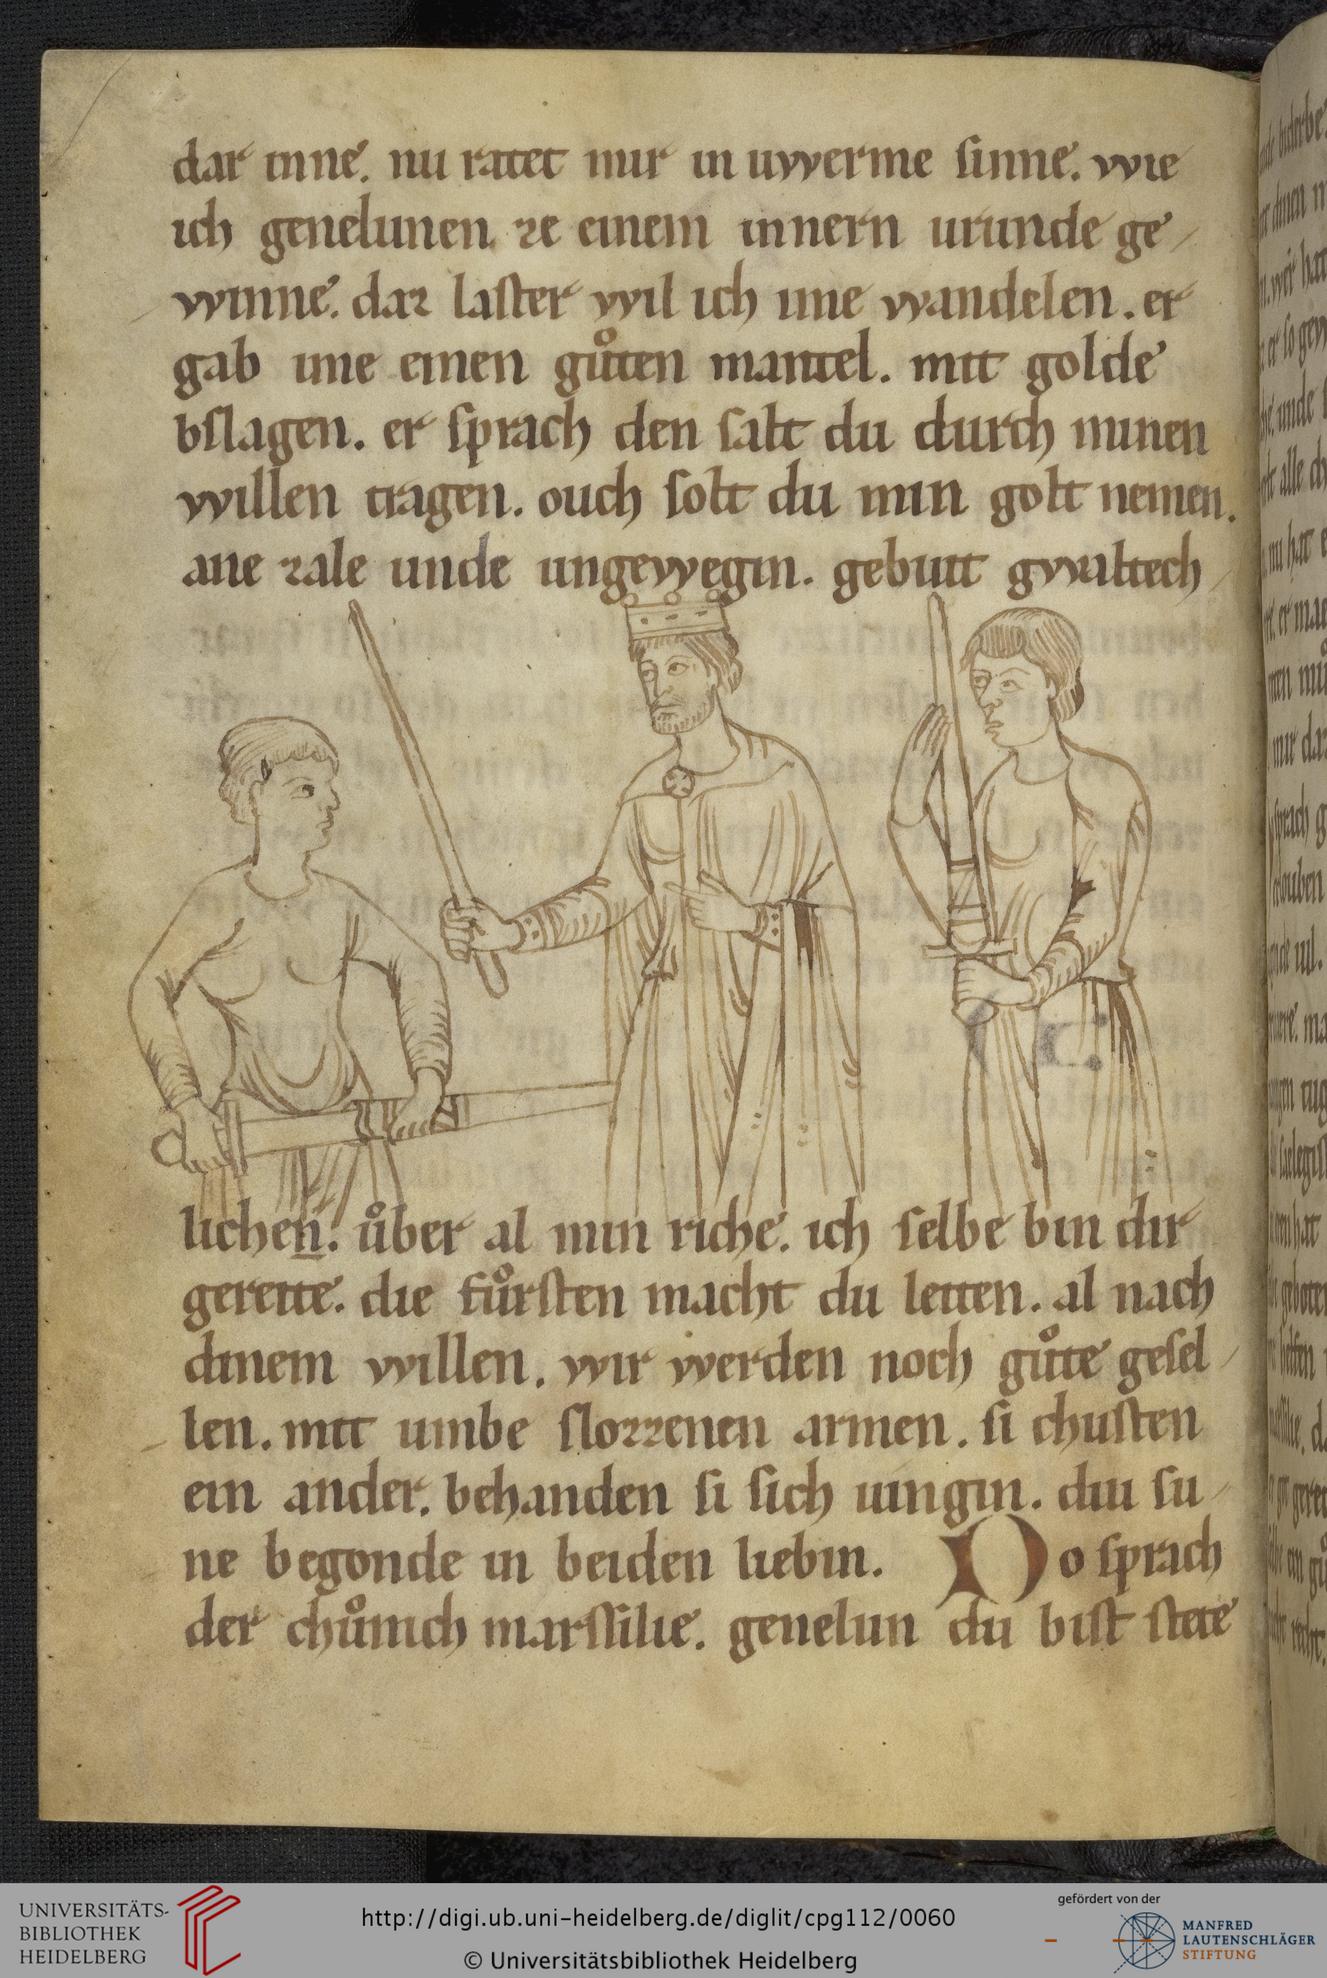 dar inne. nu ratet mir in uwerme sinne. wie
ich genelunen ze einem innern urunde ge
winne. daz laster wil ich ime wandelen. er
gab ime einen gůten mantel. mit golde
bslagen. er sprach den salt du durch minen
willen tragen. ouch solt du min golt nemen.
ane zale unde ungewegin. gebiut gwaltech
lichen. ůber al min riche. ich selbe bin dir
gereite. die fůrsten macht du leiten. al nach
dinem willen. wir werden noch gůte gesel
len. mit umbe slozzenen armen. si chusten
ein ander. behanden si sich uingin. diu su
ne begonde in beiden liebin. Do sprach
der chůnich marssilie. genelun du bist stete
UNIVERSITÄTS-
BIBLIOTHEK
HEIDELBERG
http://digi.ub.uni-heidelberg.de/diglit/cpg112/0060
© Universitätsbibliothek Heidelberg
gefördert von der
MANFRED
LAUTENSCHLÄGER
STIFTUNG